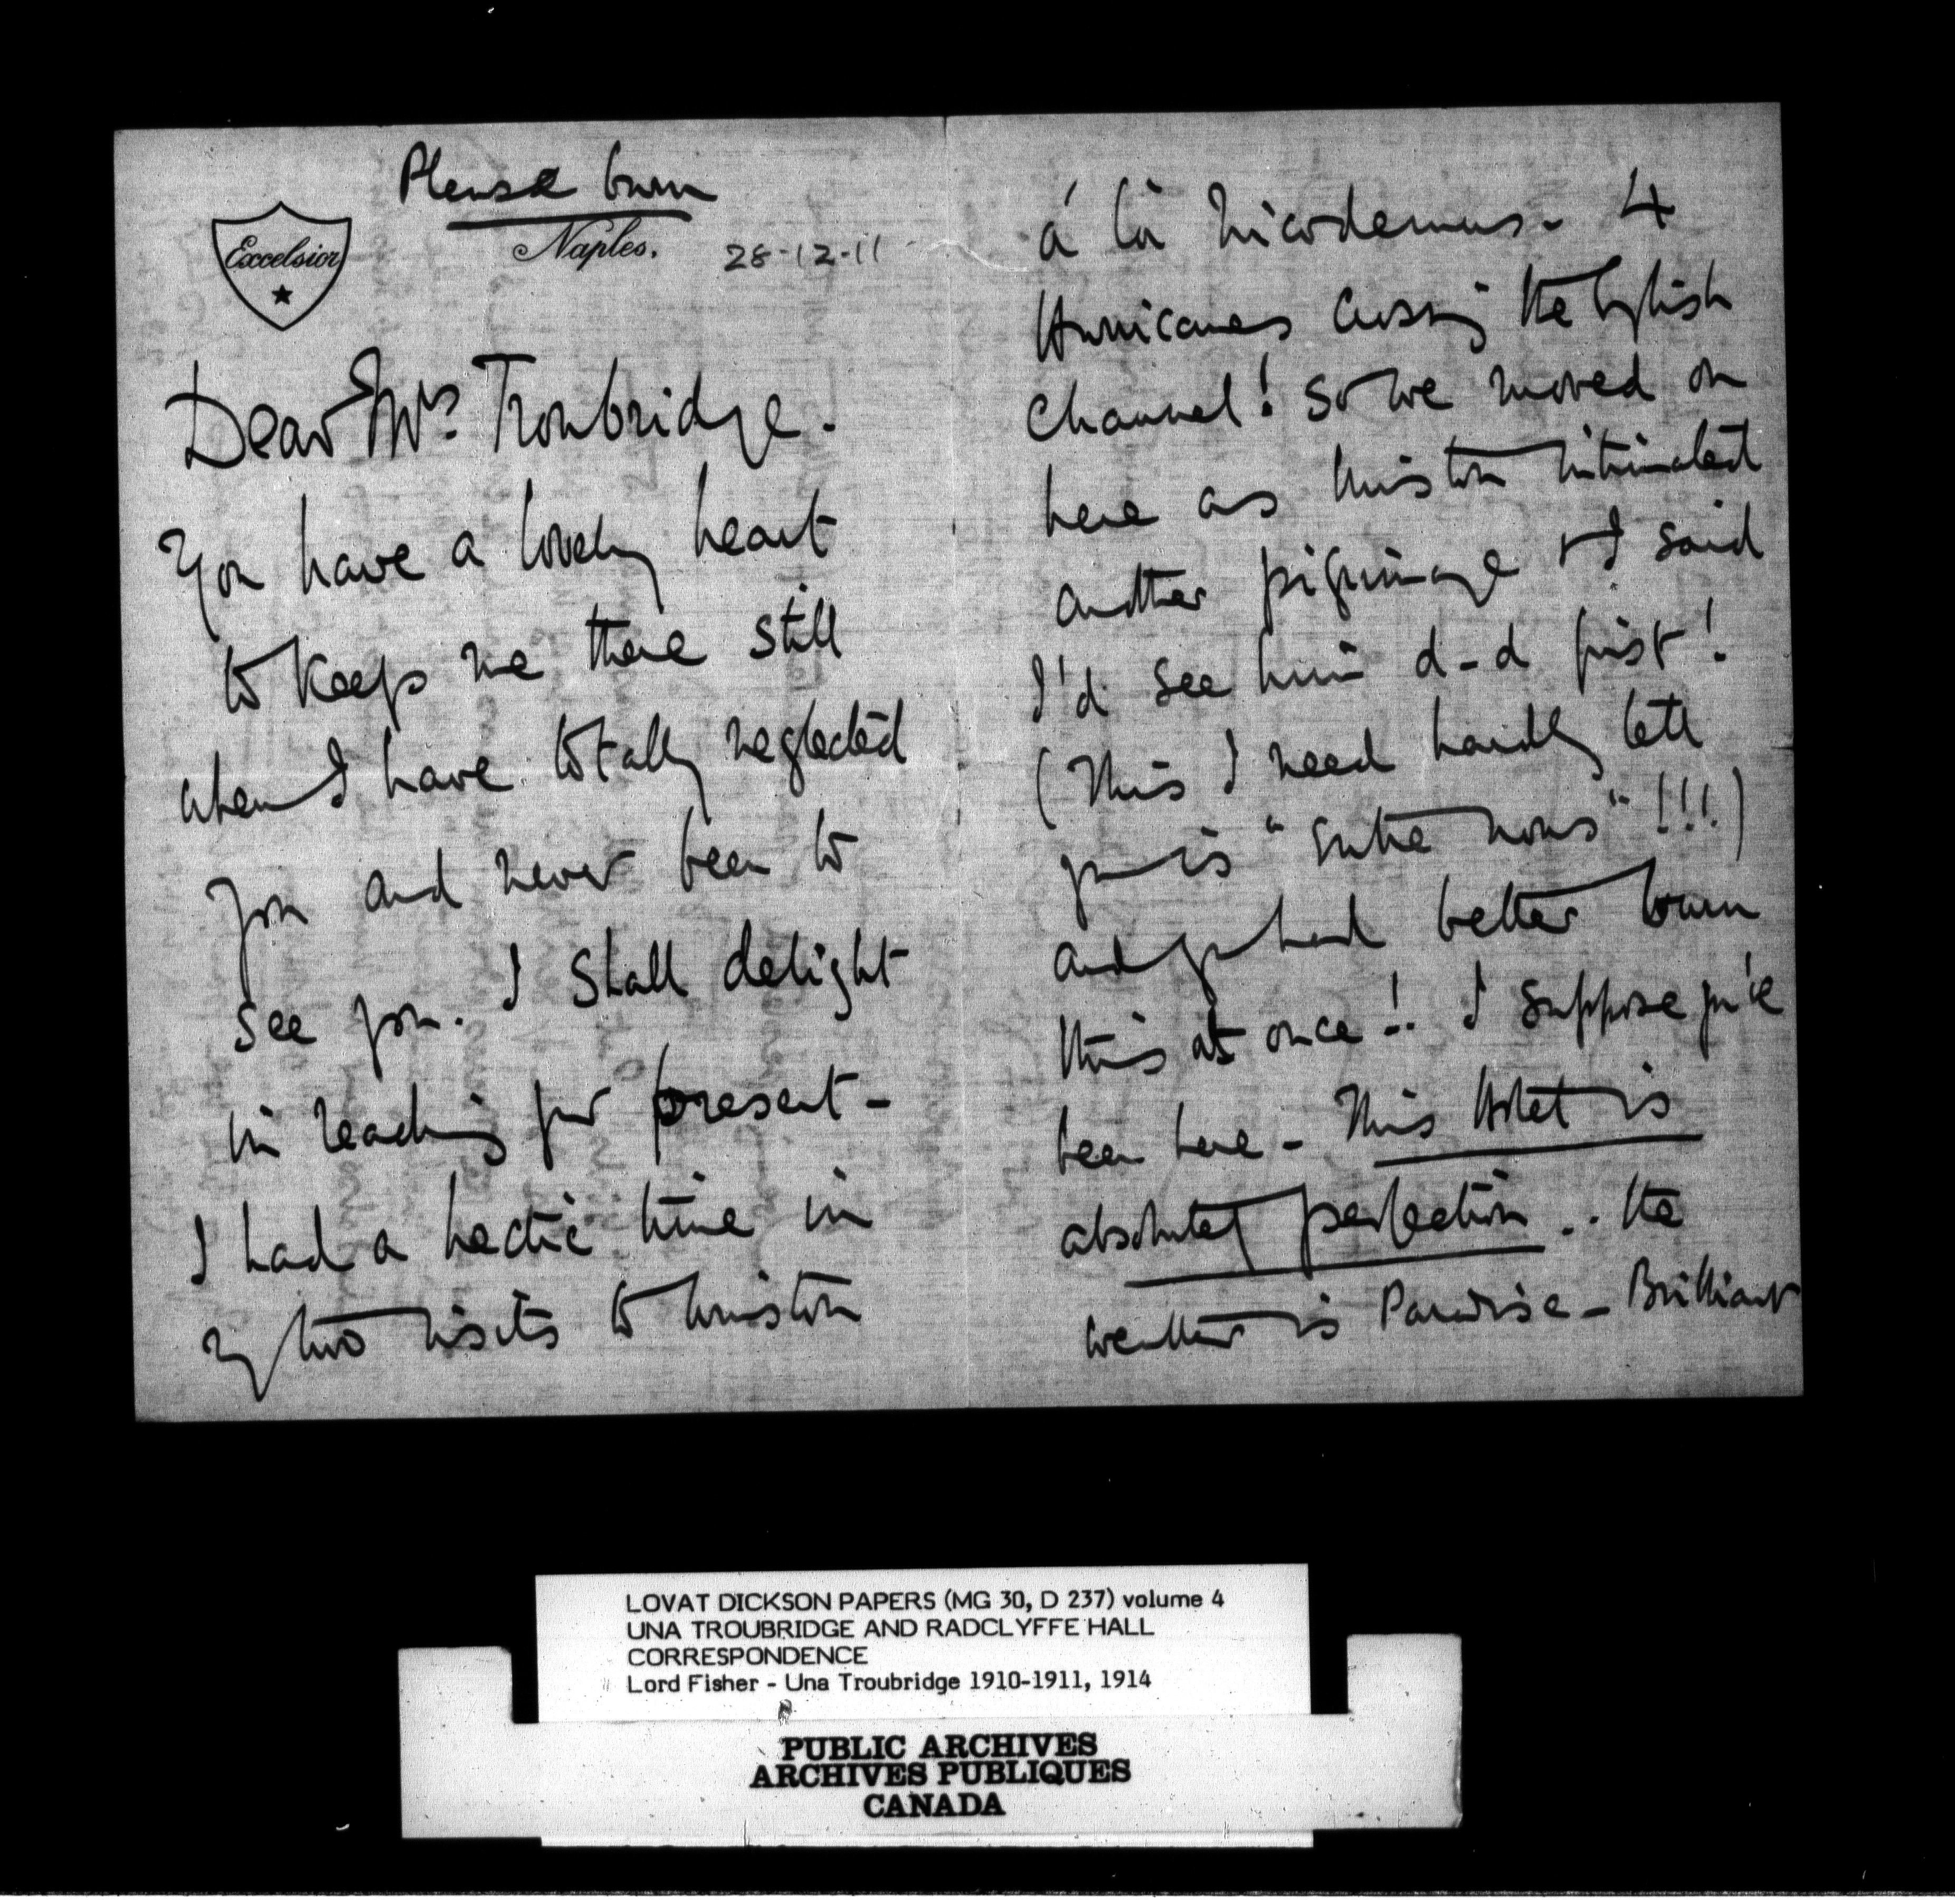 Please burn
Excelsior
Naples.
28-12-11
Dear Mrs Troubridge.
You have a lovely heart
to keep me there still
when I have totally neglected
you and never been to
see you. I shall delight
in reading your present -
I had a hectic time in
my two visits to Winston
á la Nicodemus. 4
Hurricanes crossing the English
Channel! So we moved on
here as Winston intimated
another pilgrimage & I said
I'd see him d-d first!
(This I need hardly tell
you is "entre nous"!!!)
and you had better burn
this at once!! I suppose you've
been here - This Hotel is
absolutely perfection.. the
weather is Paradise - Brilliant
LOVAT DICKSON PAPERS (MG 30, D 237) volume 4
UNA TROUBRIDGE AND RADCLYFFE HALL
CORRESPONDENCE
Lord Fisher - Una Troubridge 1910-1911, 1914
PUBLIC ARCHIVES
ARCHIVES PUBLIQUES
CANADA